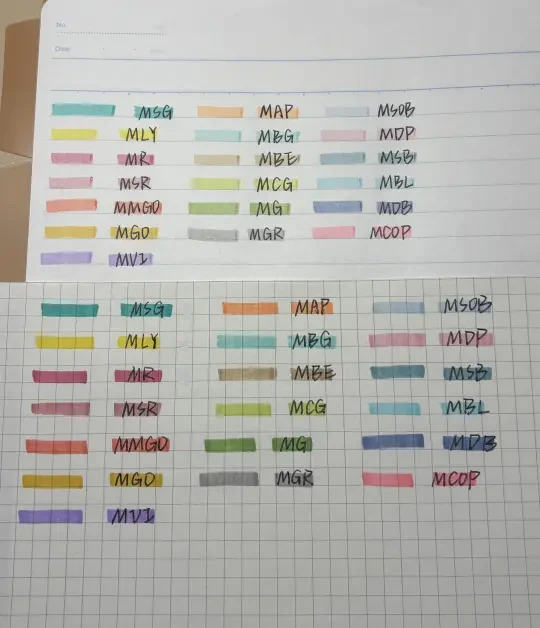 No.
Date
MSG MAP MSOB
MLY MBG MDP
MR MBE MSB
MSR MCG MBL
MMGO MG MDB
MGO MGR MCOP
MVI
MSG MAP MSOB
MLY MBG MDP
MR MBE MSB
MSR MCG MBL
MMGO MG MDB
MGO MGR MCOP
MVI